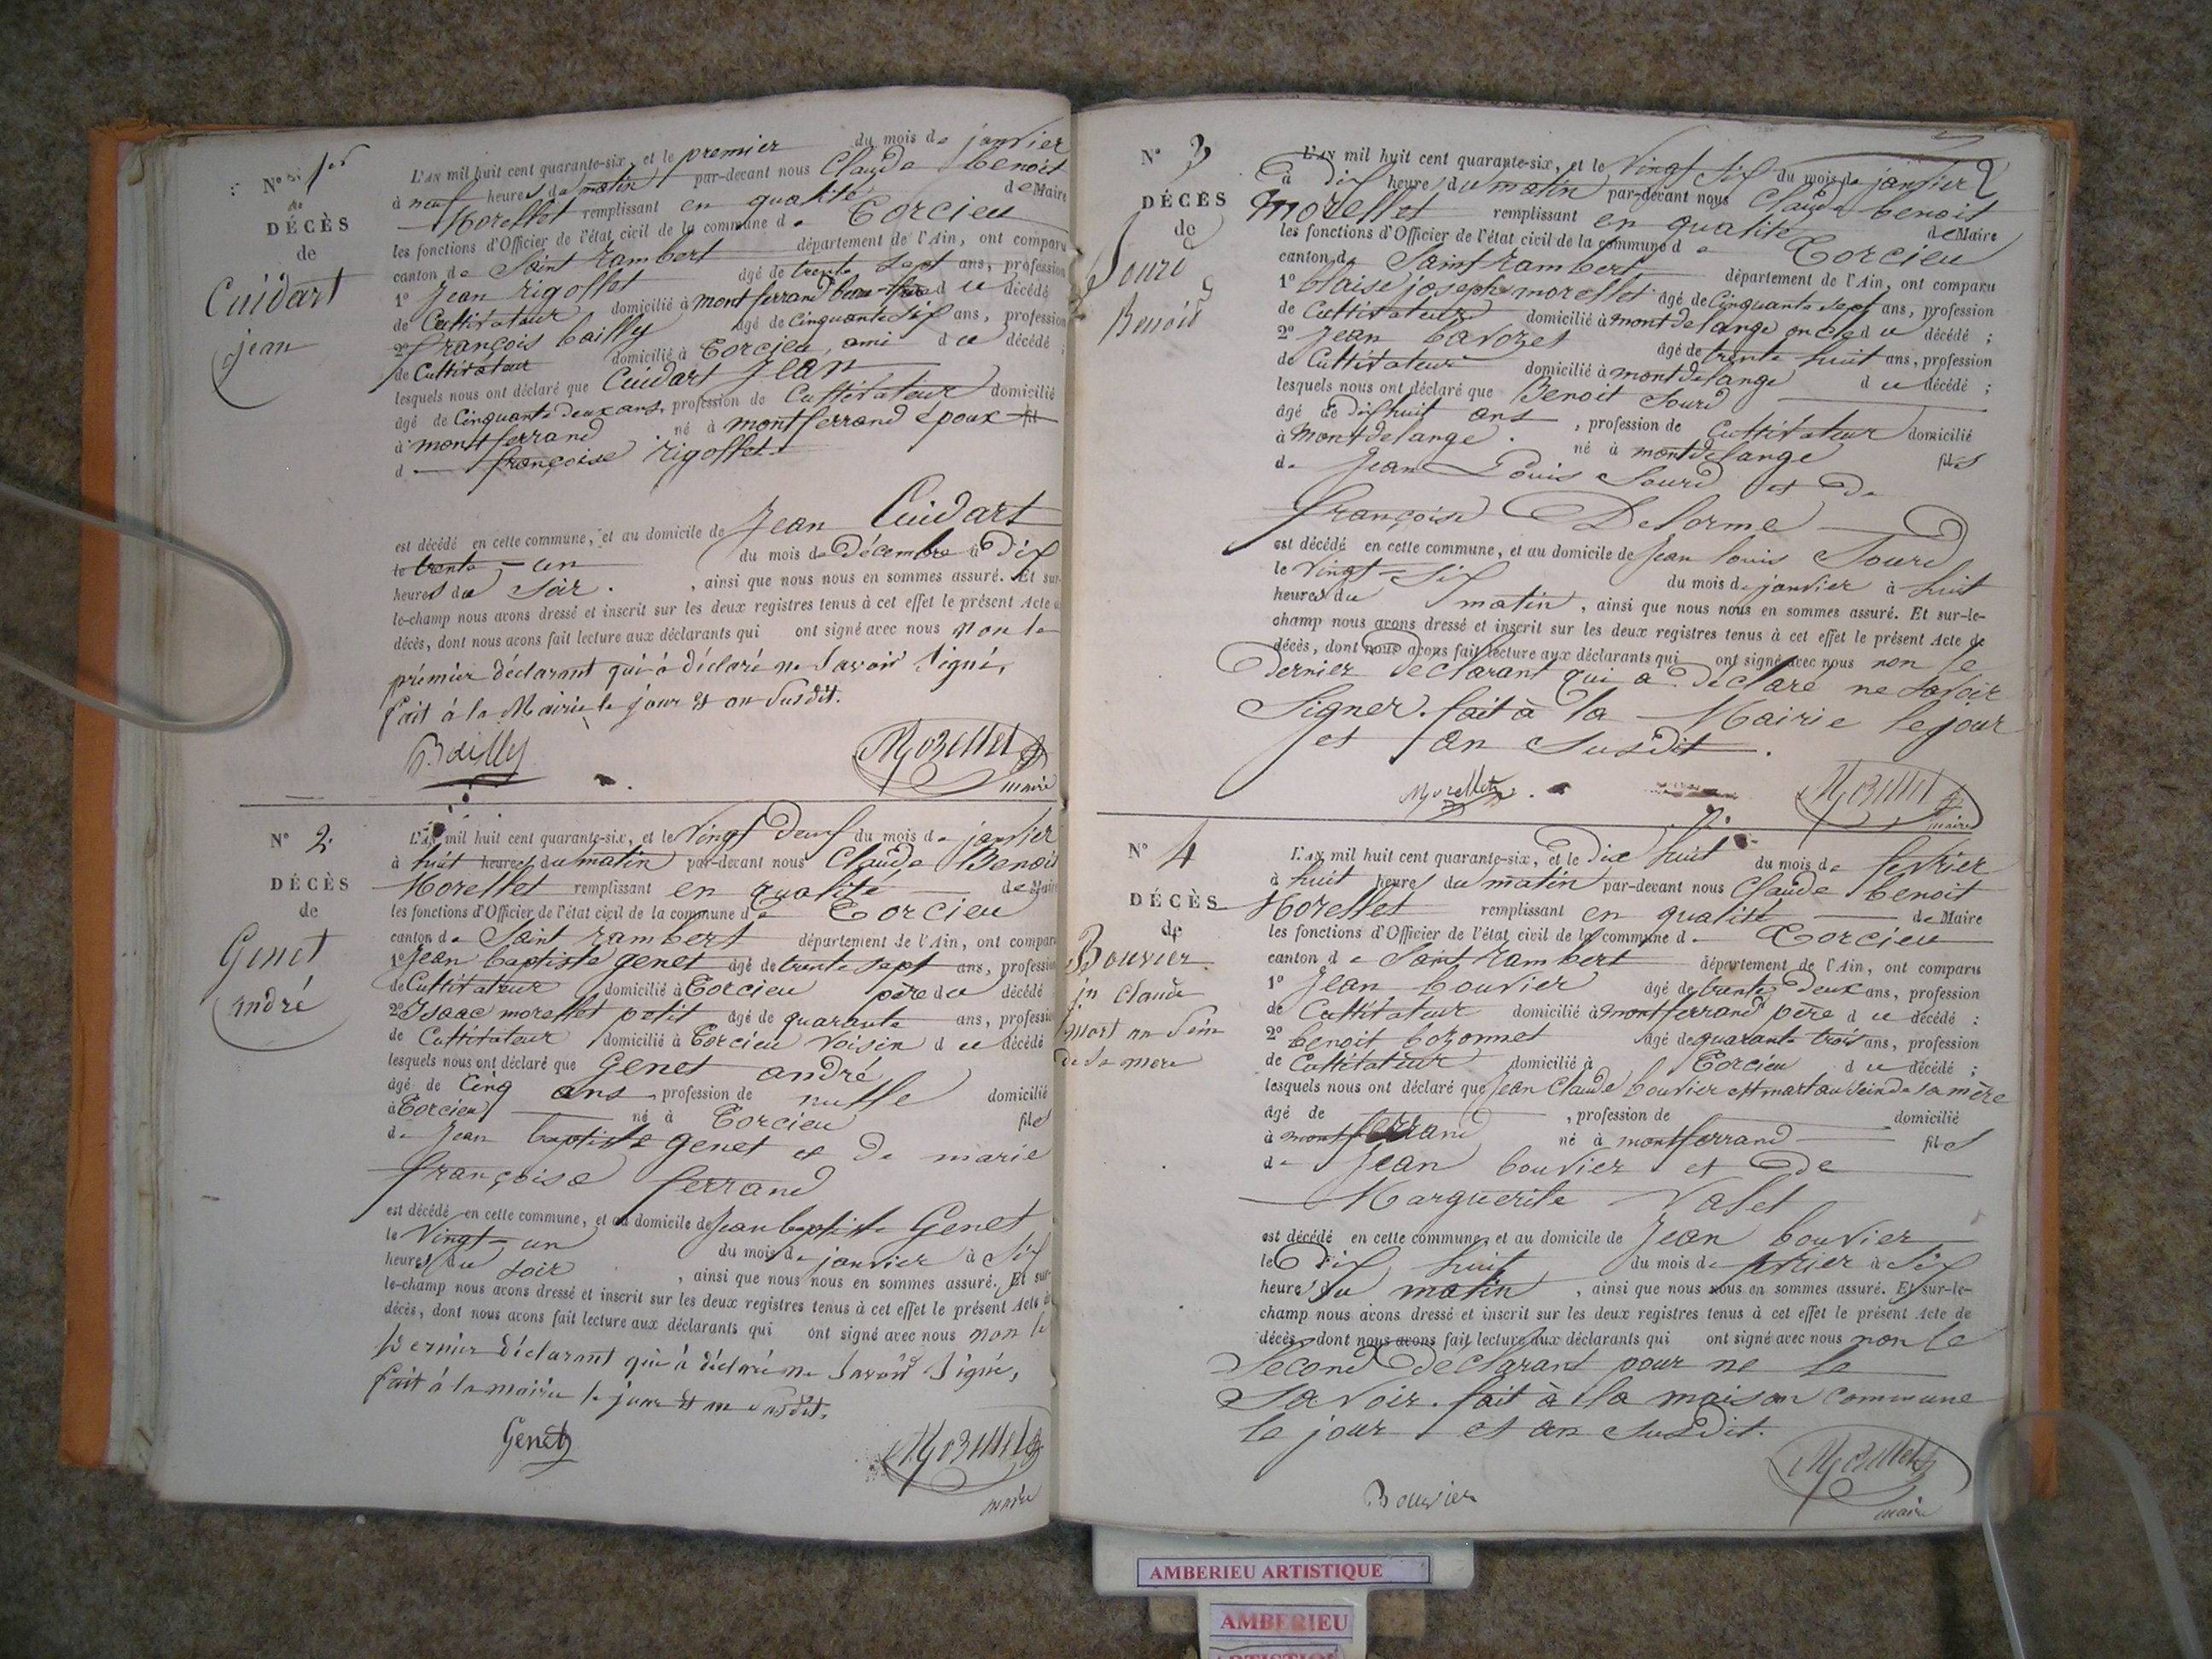 N° 1er
DÉCÈS
de
Cuidart
jean
L'AN mil huit cent quarante-six, et le premier du mois de janvier
à neuf heures du matin par-devant nous Claude benoit
Morellet remplissant en qualité de Maire
les fonctions d'Officier de l'état civil de la commune de Torcieu
canton de Saint rambert département de l'Ain, ont comparu
1° Jean rigollet âgé de trente sept ans, profession
de Cultivateur domicilié à montferrand beau frère du décédé
2° françois bailly âgé de Cinquante six ans, profession
de Cultivateur domicilié à Torcieu, ami du décédé ;
lesquels nous ont déclaré que Cuidart Jean
âgé de Cinquante deux ans, profession de Cultivateur domicilié
à montferrand né à montferrand époux fil
d françoise rigollet
est décédé en cette commune, et au domicile de Jean Cuidart
le trente-un du mois de Décembre à Dix
heures du soir. , ainsi que nous nous en sommes assuré. Et sur-
le-champ nous avons dressé et inscrit sur les deux registres tenus à cet effet le présent Acte de
décès, dont nous avons fait lecture aux déclarants qui ont signé avec nous non le
prémier déclarant qui à déclaré ne Savoir Signé,
fait à la Mairie le jour et an Susdit.
Bailly Morellet
maire
N° 2
DÉCÈS
de
Genet
andré
L'AN mil huit cent quarante-six, et le Vingt Deux du mois de janvier
à huit heures du matin par-devant nous Claude Benoit
Morellet remplissant en qualité de Maire
les fonctions d'Officier de l'état civil de la commune de Torcieu
canton de Saint rambert département de l'Ain, ont comparu
1° Jean baptiste genet âgé de trente sept ans, profession
de Cultivateur domicilié à Torcieu père du décédé
2° Isaac morellet petit âgé de quarante ans, profession
de Cultivateur domicilié à Torcieu Voisin du décédé
lesquels nous ont déclaré que Genet andré
âgé de Cinq ans, profession de nulle domicilié
à Torcieu né à Torcieu fils
de Jean baptiste genet et de marie
françoise ferrand
est décédé en cette commune, et au domicile de Jean baptiste Genet
le Vingt-un du mois de janvier à Six
heures du soir , ainsi que nous nous en sommes assuré. Et sur-
le-champ nous avons dressé et inscrit sur les deux registres tenus à cet effet le présent Acte de
décès, dont nous avons fait lecture aux déclarants qui ont signé avec nous non le
Dernier déclarant qui à déclaré ne Savoir Signé,
fait à la mairie le jour et an Susdit.
Genet Morellet
maire
N° 3
DÉCÈS
de
Sourd
Benoit
L'AN mil huit cent quarante-six, et le Vingt Six du mois de janvier
à Dix heures du matin par-devant nous Claude benoit
Morellet remplissant en qualité de Maire
les fonctions d'Officier de l'état civil de la commune de Torcieu
canton de Saint rambert département de l'Ain, ont comparu
1° blaise joseph morellet âgé de Cinquante Sept ans, profession
de Cultivateur domicilié à montdelange oncle du décédé ;
2° Jean bavozet âgé de trente huit ans, profession
de Cultivateur domicilié à montdelange du décédé ;
lesquels nous ont déclaré que Benoit Sourd
âgé de dix huit ans , profession de Cultivateur domicilié
à Montdelange. né à montdelange fils
de Jean Louis Sourd et de
françoise Delorme
est décédé en cette commune, et au domicile de Jean louis Sourd
le Vingt-Six du mois de janvier à huit
heures du matin , ainsi que nous nous en sommes assuré. Et sur-le-
champ nous avons dressé et inscrit sur les deux registres tenus à cet effet le présent Acte de
décès, dont nous avons fait lecture aux déclarants qui ont signé avec nous non le
Dernier déclarant qui a déclaré ne savoir
Signer. fait à la Mairie le jour
et an Susdit.
Morellet Morellet
maire
N° 4
DÉCÈS
de
Bouvier
jn Claude
mort au Sein
de Sa mere
L'AN mil huit cent quarante-six, et le Dix huit du mois de fevrier
à huit heures du matin par-devant nous Claude benoit
Morellet remplissant en qualité de Maire
les fonctions d'Officier de l'état civil de la commune de Torcieu
canton de Saint rambert département de l'Ain, ont comparu
1° Jean bouvier âgé de trente Deux ans, profession
de Cultivateur domicilié à montferrand père du décédé ;
2° benoit bozonnet âgé de quarante trois ans, profession
de Cultivateur domicilié à Torcieu du décédé ;
lesquels nous ont déclaré que Jean Claude bouvier est mort au Sein de sa mère
âgé de , profession de domicilié
à montferrand né à montferrand fils
de Jean bouvier et de
Marguerite Valet
est décédé en cette commune, et au domicile de Jean bouvier
le Dix huit du mois de fevrier à Six
heures du matin , ainsi que nous nous en sommes assuré. Et sur-le-
champ nous avons dressé et inscrit sur les deux registres tenus à cet effet le présent Acte de
décès, dont nous avons fait lecture aux déclarants qui ont signé avec nous non le
Second Déclarant pour ne le
Savoir. fait à la maison Commune
le jour et an Susdit.
Bouvier Morellet
maire
AMBERIEU ARTISTIQUE
AMBERIEU
ARTISTIQUE